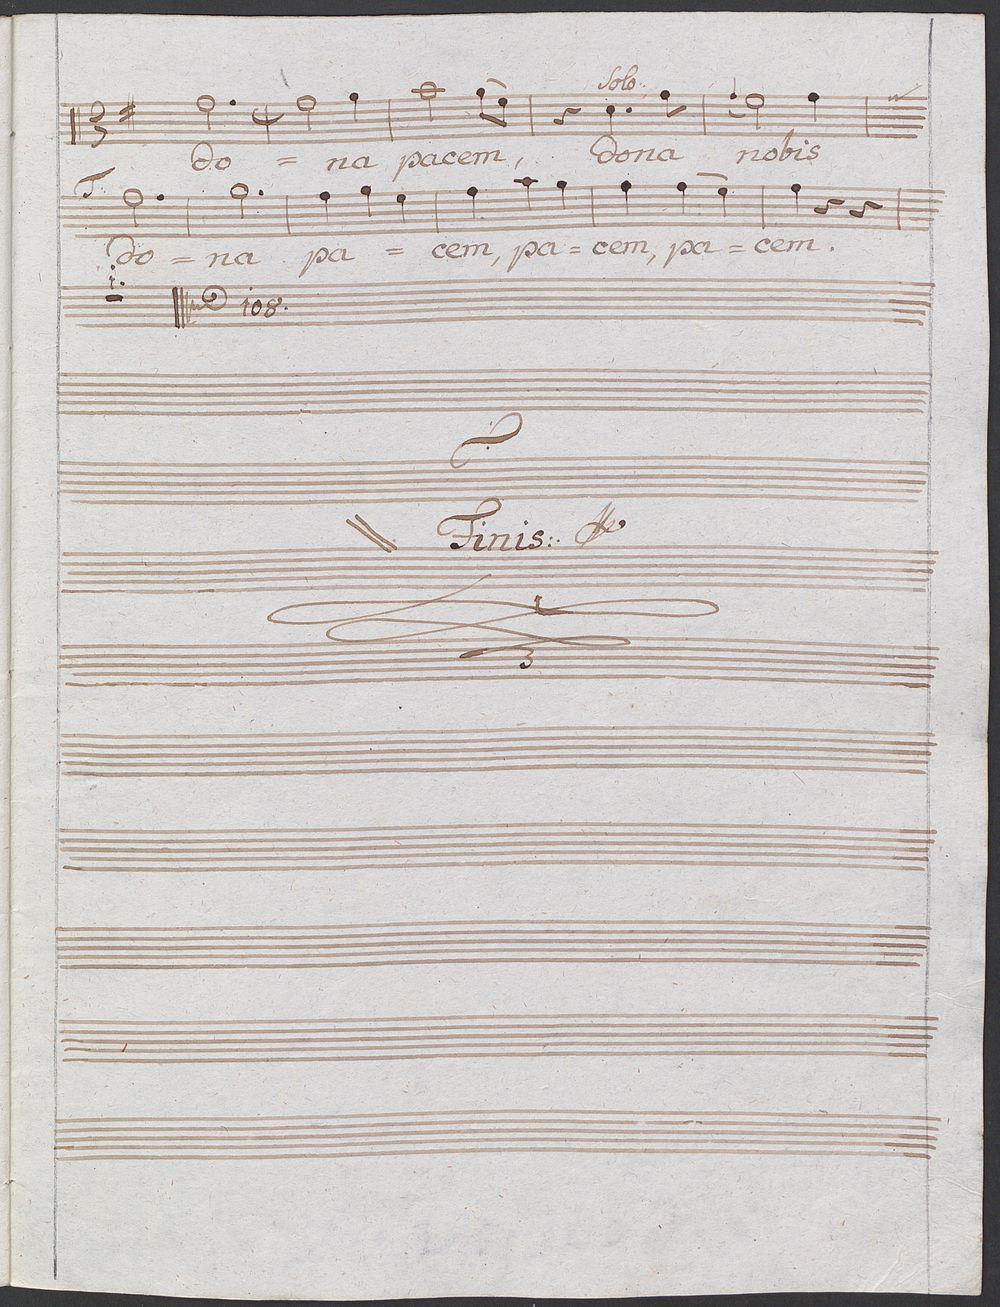 Solo.
do = na pacem, dona nobis
T.
do = na pa = cem, pa = cem, pa = cem.
1.
108.
Finis.
3